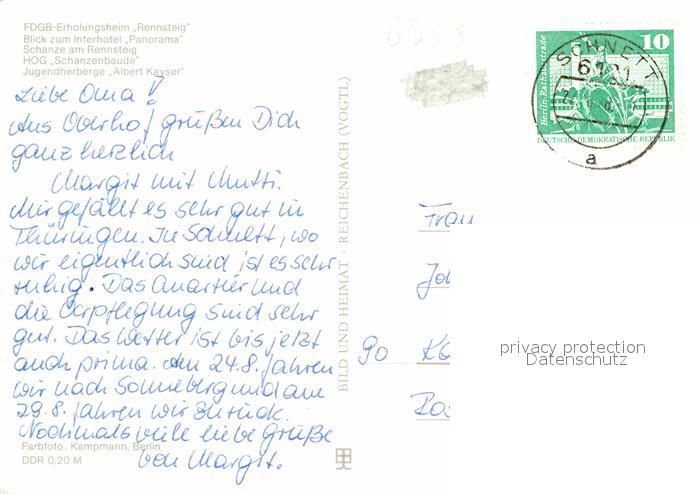 FDGB-Erholungsheim „Rennsteig"
Blick zum Interhotel „Panorama"
Schanze am Rennsteig
HOG „Schanzenbaude"
Jugendherberge „Albert Kayser"
Liebe Oma!
Aus Oberhof grüßen Dich
ganz herzlich
Margit mit Mutti.
Mir gefällt es sehr gut in
Thüringen. In Schnett, wo
wir eigentlich sind ist es sehr
ruhig. Das Quartier und
die Verpflegung sind sehr
gut. Das Wetter ist bis jetzt
auch prima. Am 24.8. fahren
wir nach Sonneberg und am
29.8. fahren wir zurück.
Nochmals viele liebe Grüße
von Margit.
Farbfoto: Kampmann, Berlin
DDR 0,20 M
BILD UND HEIMAT · REICHENBACH (VOGTL)
10
Berlin-Rathausstraße
DEUTSCHE DEMOKRATISCHE REPUBLIK
SCHNETT
6121
a
Frau
Joh
90 Kö
Ros
privacy protection
Datenschutz